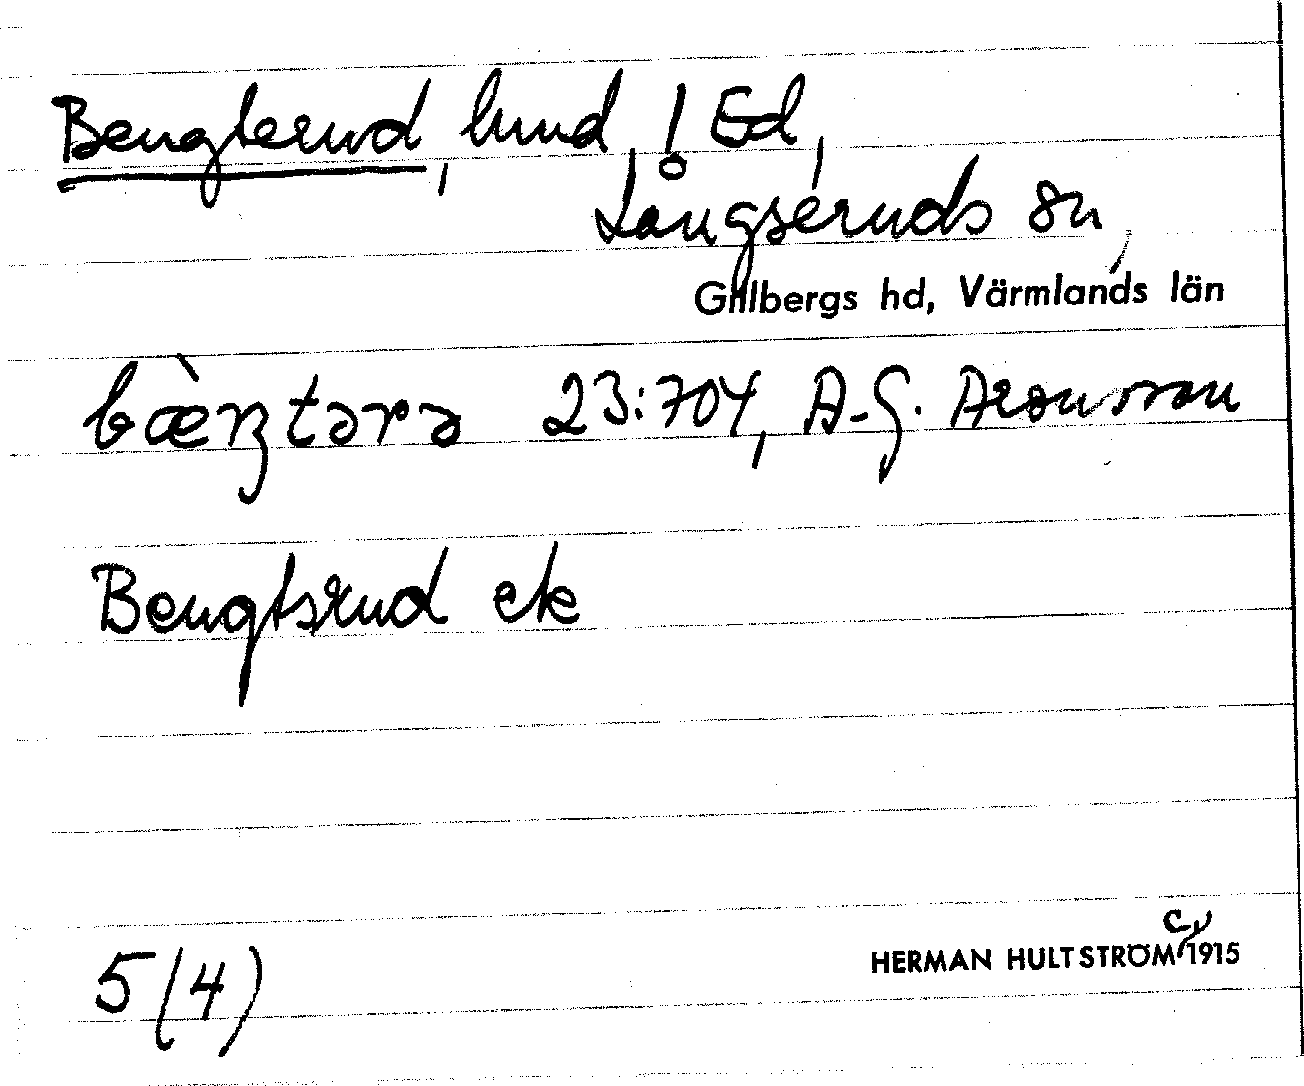 Bengterud, hmd ! Ed,
Långseruds sn,
Gillbergs hd, Värmlands län
bæ̀ŋtərə 23:704, A-G. Aronsson
Bengtsrud ek
5(4)
HERMAN HULTSTRÖM 1915